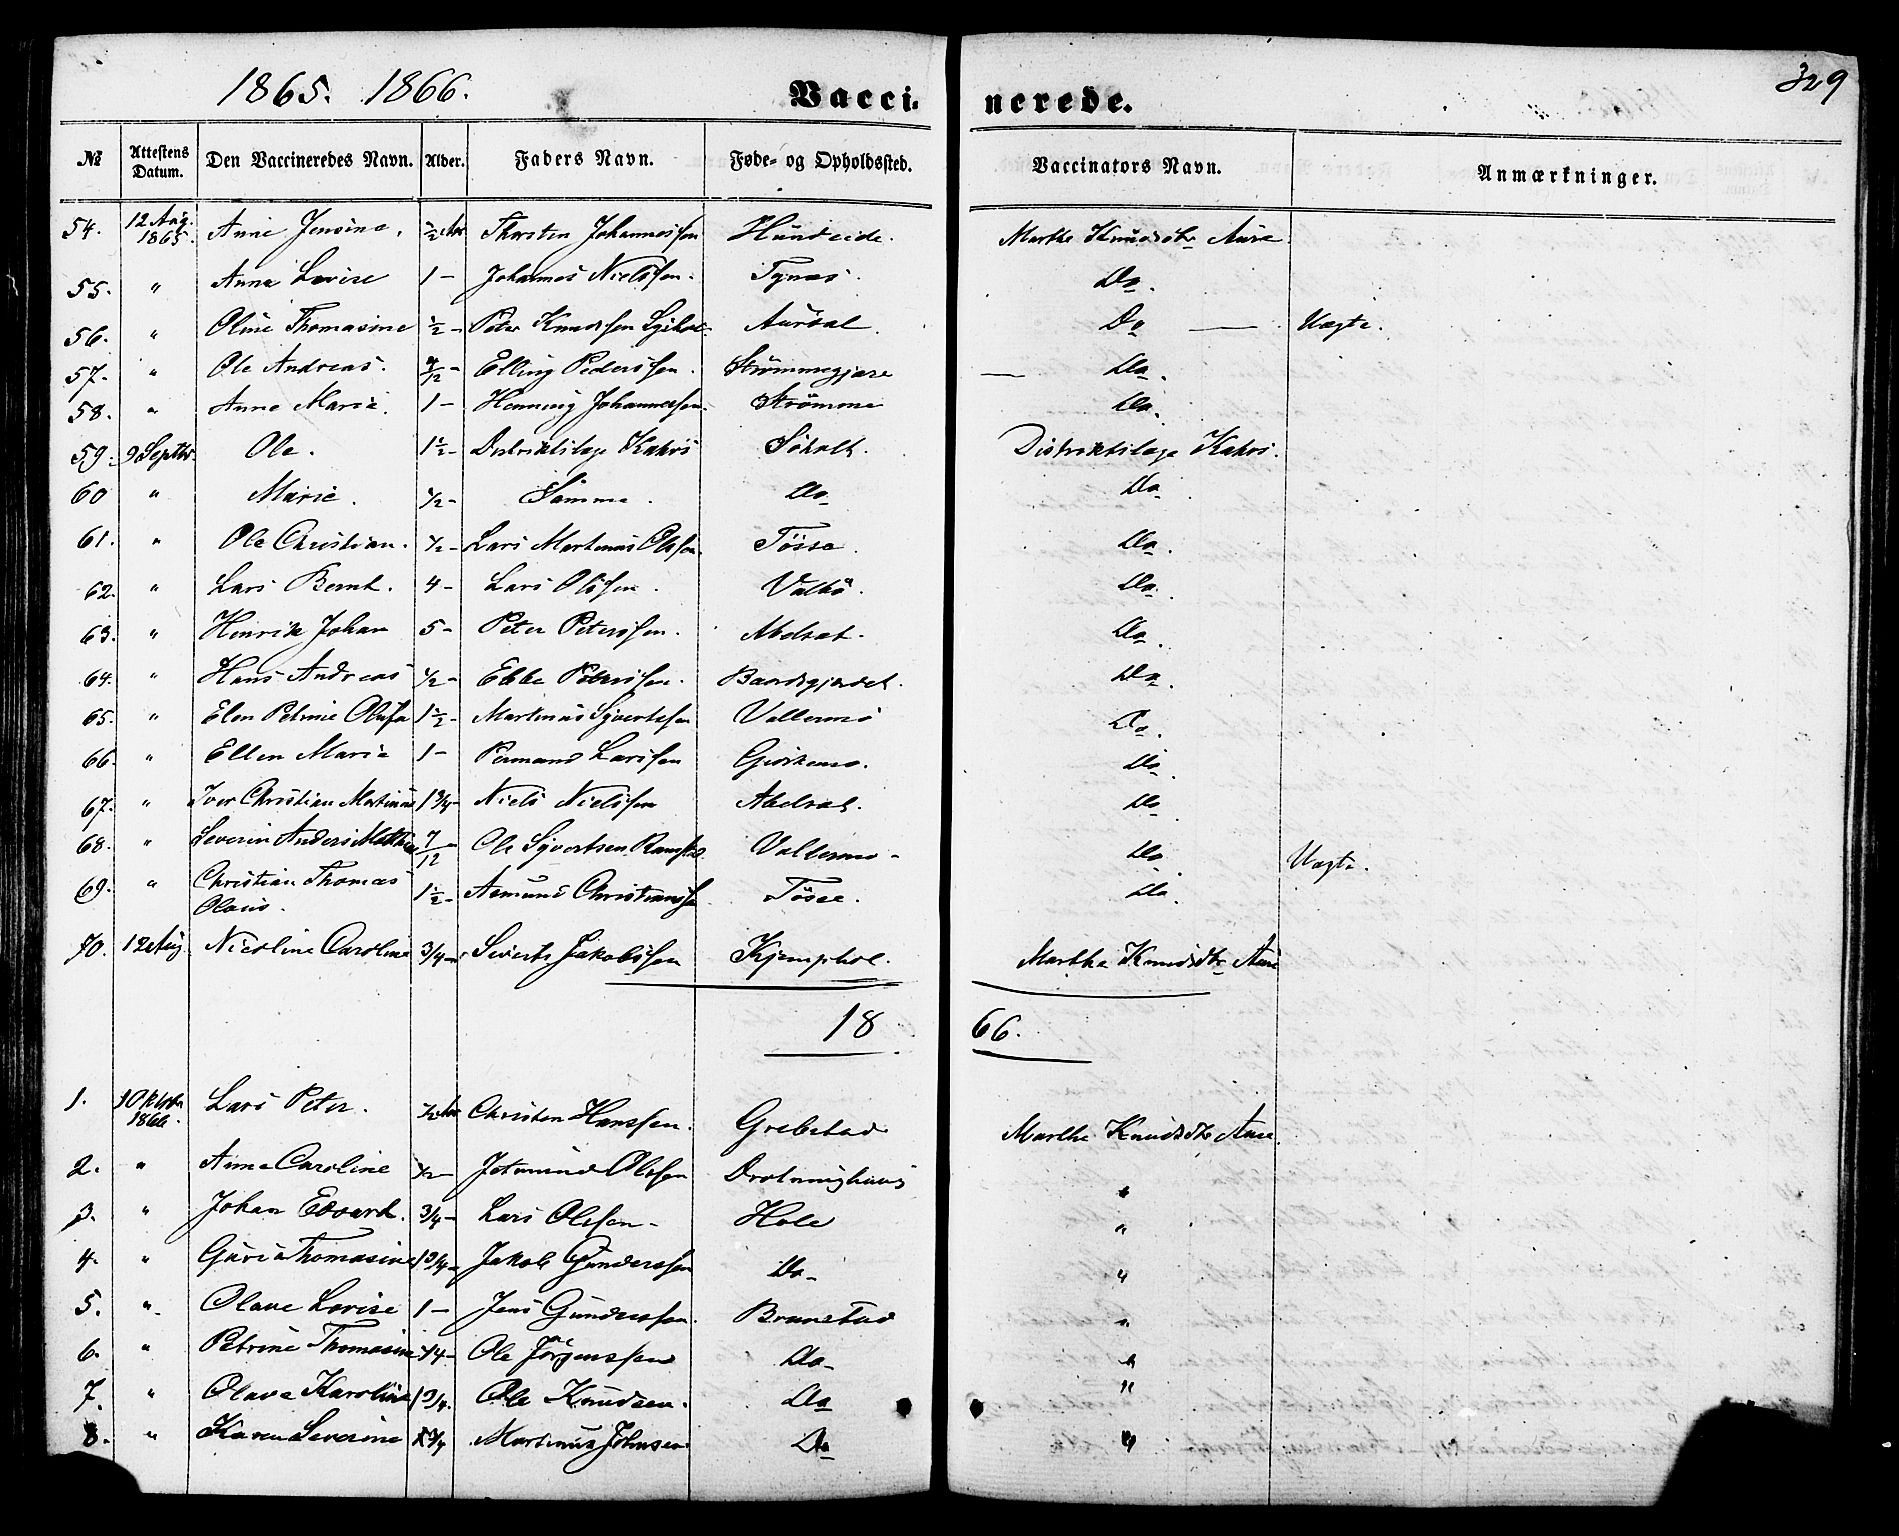 1865. 1866. Vaccinerede. 329
№ Attestens Datum. Den Vaccineredes Navn. Alder. Faders Navn. Føde- og Opholdssted. Vaccinators Navn. Anmærkninger.
54. 12 Aug. 1865. Anne Jensine. ½ Aar Thorsten Johannessen Hundeide. Marthe Knudsdtr Aure
55. " Anne Lovise 1 - Johannes Nielssen. Tynes. Do.
56. " Oline Thomasine ½ - Peter Knudssen Aursal. Do Uægte.
57. " Ole Andreas. - Elling Pederssen. Strømmegjære Do.
58. " Anne Marie. 1 - Henning Johannessen. Strømme Do.
59. 9 Septbr. Ole. 1½ - Distriktslæge Kahrs Søholt. Distriktslæge Kahrs.
60 " Marie. ½ - Samme. Do Do
61. " Ole Christian. ½ - Lars Martinus Olssen. Tøsse. Do.
62. " Lars Bernt. 4 - Lars Olssen. Valbø. Do.
63. " Henrik Johan 5 - Peter Peterssen. Abelset. Do.
64. " Hans Andreas ½ - Ebbe Peterssen. Baardsgjerdet. Do.
65. " Elen Petrine Olufa 1½ - Martinus Syvertssen Vallermo Do.
66. " Ellen Marie 1 - Larssen Do.
67. " Iver Christian Martinus 1¾ - Niels Nielssen Abelset. Do
68. " Severin Anders 7/12 - Ole Syvertsen Ramstad Vallermo - Do Uægte.
69. " Christian Thomas 1½ - Asmund Christianssen Tøsse. Do
Olaus.
70. 12 Aug. Nicoline Caroline ¾ - Sivert Jakobssen Kjemphol. Marthe Knudsdtr Aure
18 66.
1. 1 Oktober 1866. Lars Peter. ½ Aar Christen Hanssen. Grebstad Marthe Knudsdtr Aure.
2. " Anne Caroline ½ - Jetmund Olssen Drotninghaug "
3. " Johan Edvard. ¾ - Lars Olssen - Hole "
4. " Guria Thomasine 1¾ - Jakob Gunderssen Do - "
5. " Olave Lovise 1 - Jens Gunderssen. Brunstad "
6. " Petrine Thomasine ¼ - Ole Jörgenssen Do - "
7. " Olave Karoline 1¾. Ole Knudsen. Do "
8. " Karen Severine Martinus Johnsen Do "